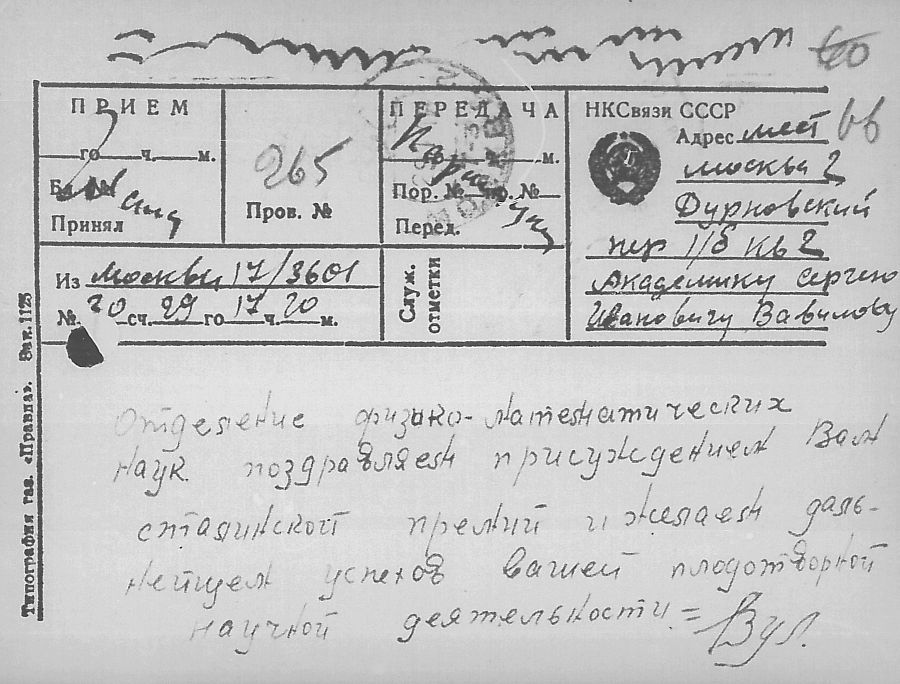 60
ПРИЕМ
го ч. м.
Бл. №
Принял
265
Пров. №
ПЕРЕДАЧА
го ч. м.
Пор. № пр. №
Перед.
НКСвязи СССР
Адрес мест
66
Москва 2
Дурновский
пер 1/б кв 2
Академику Сергею
Ивановичу Вавилову
Из Москвы 17/3601
№ 20 сч. 29 го 17 ч. 20 м.
Служ. отметки
Типография газ. «Правда». Зак. 1125
Отделение физико-математических
наук поздравляем присуждением Вам
сталинской премии и желаем даль-
нейщем успехов вашей плодотворной
научной деятельности = Вул.